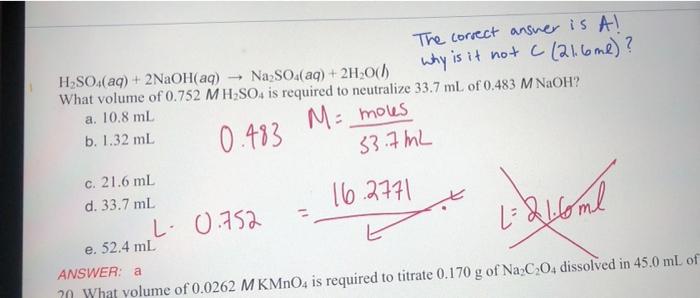 The correct answer is A!
why is it not C (21.6ml)?
H₂SO₄(aq) + 2NaOH(aq) → Na₂SO₄(aq) + 2H₂O(l)
What volume of 0.752 M H₂SO₄ is required to neutralize 33.7 mL of 0.483 M NaOH?
a. 10.8 mL
b. 1.32 mL
0.483 M = moles
33.7mL
c. 21.6 mL
d. 33.7 mL
L· 0.752 = 16.2771 · L
L
L= 21.6ml
e. 52.4 mL
ANSWER: a
20. What volume of 0.0262 M KMnO₄ is required to titrate 0.170 g of Na₂C₂O₄ dissolved in 45.0 mL of